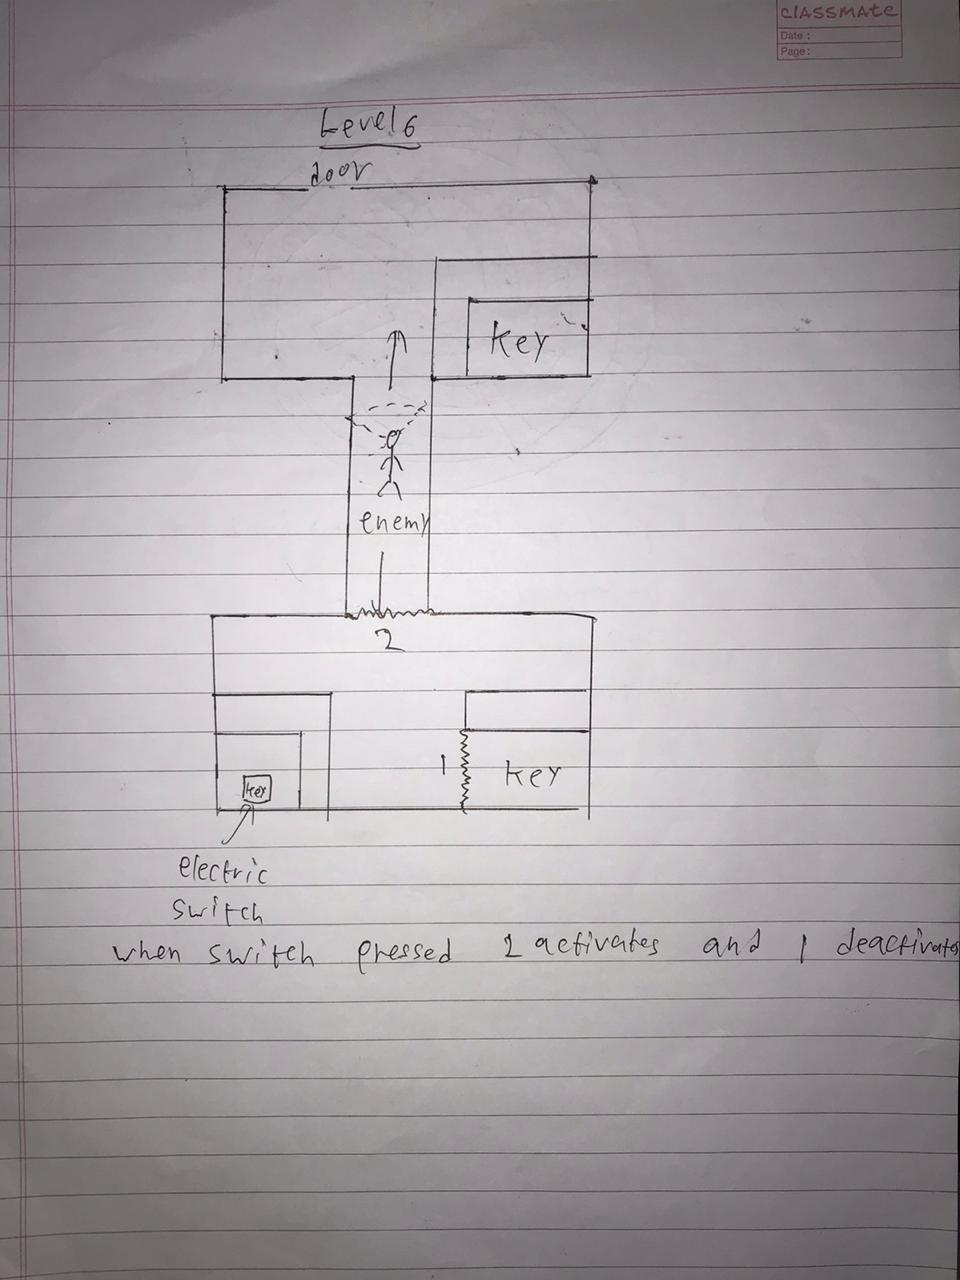 classmate
Date :
Page :
Level 6
door
key
enemy
2
1
key
key
electric
switch
when switch pressed 2 activates and 1 deactivates